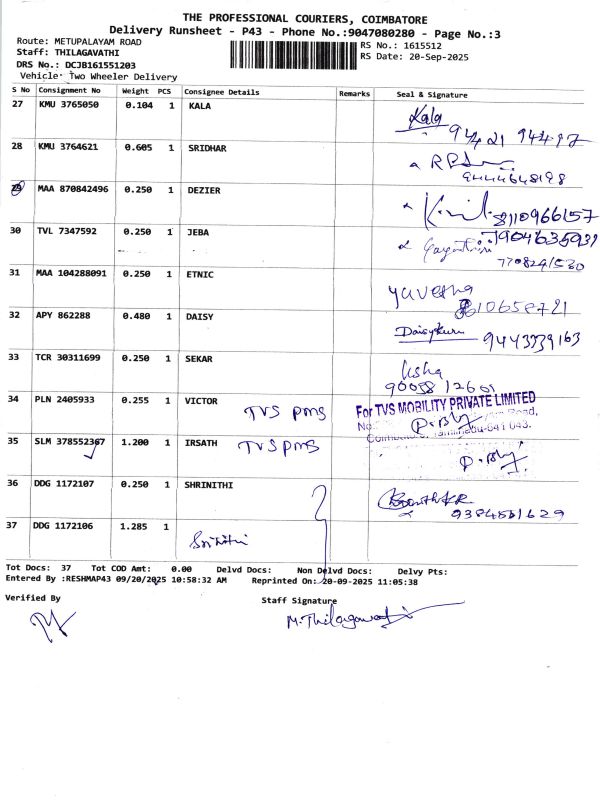 THE PROFESSIONAL COURIERS, COIMBATORE
Delivery Runsheet - P43 - Phone No.:9047080280 - Page No.:3
Route: METUPALAYAM ROAD
RS No.: 1615512
Staff: THILAGAVATHI
RS Date: 20-Sep-2025
DRS No.: DCJB161551203
Vehicle: Two Wheeler Delivery
S No Consignment No Weight PCS Consignee Details Remarks Seal & Signature
27 KMU 3765050 0.104 1 KALA Kala
94421 94497
28 KMU 3764621 0.605 1 SRIDHAR
9444648198
29 MAA 870842496 0.250 1 DEZIER
8110966157
30 TVL 7347592 0.250 1 JEBA 7904635931
Gayathiri
7708241530
31 MAA 104288091 0.250 1 ETNIC Yuvetha
32 APY 862288 0.480 1 DAISY Daisykuru 9443339163
33 TCR 30311699 0.250 1 SEKAR Usha
9005812601
34 PLN 2405933 0.255 1 VICTOR TVS PMS
For TVS MOBILITY PRIVATE LIMITED
35 SLM 378552367 1.200 1 IRSATH TVS PMS
36 DDG 1172107 0.250 1 SHRINITHI
9384551629
37 DDG 1172106 1.285 1 Srinithi
Tot Docs: 37 Tot COD Amt: 0.00 Delvd Docs: Non Delvd Docs: Delvy Pts:
Entered By :RESHMAP43 09/20/2025 10:58:32 AM Reprinted On: 20-09-2025 11:05:38
Verified By Staff Signature
M.Thilagavathi